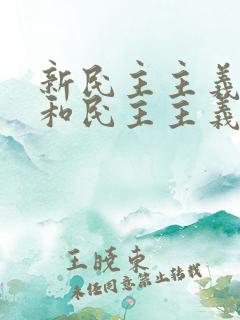 新民主主義
和民主主義
王晓东
未经同意禁止转载